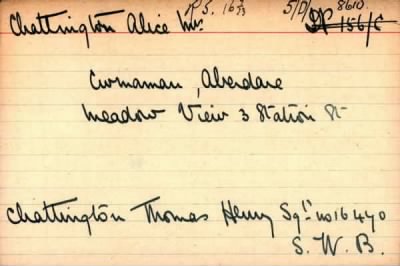 R.S. 16/73 5/D/ 8610.
Chattington Alice Mrs. SP 156/C
Cwmaman, Aberdare
Meadow View 3 Station St
Chattington Thomas Henry Sgt no 16470
S. W. B.